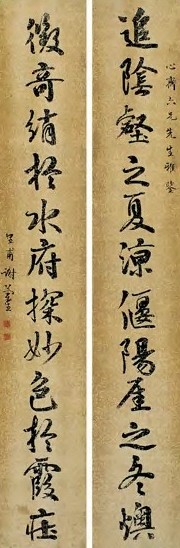 心齋六兄先生雅鉴
追陰壑之夏涼偃陽崖之冬燠
徵奇績於水府探妙色於霞莊
星甫謝